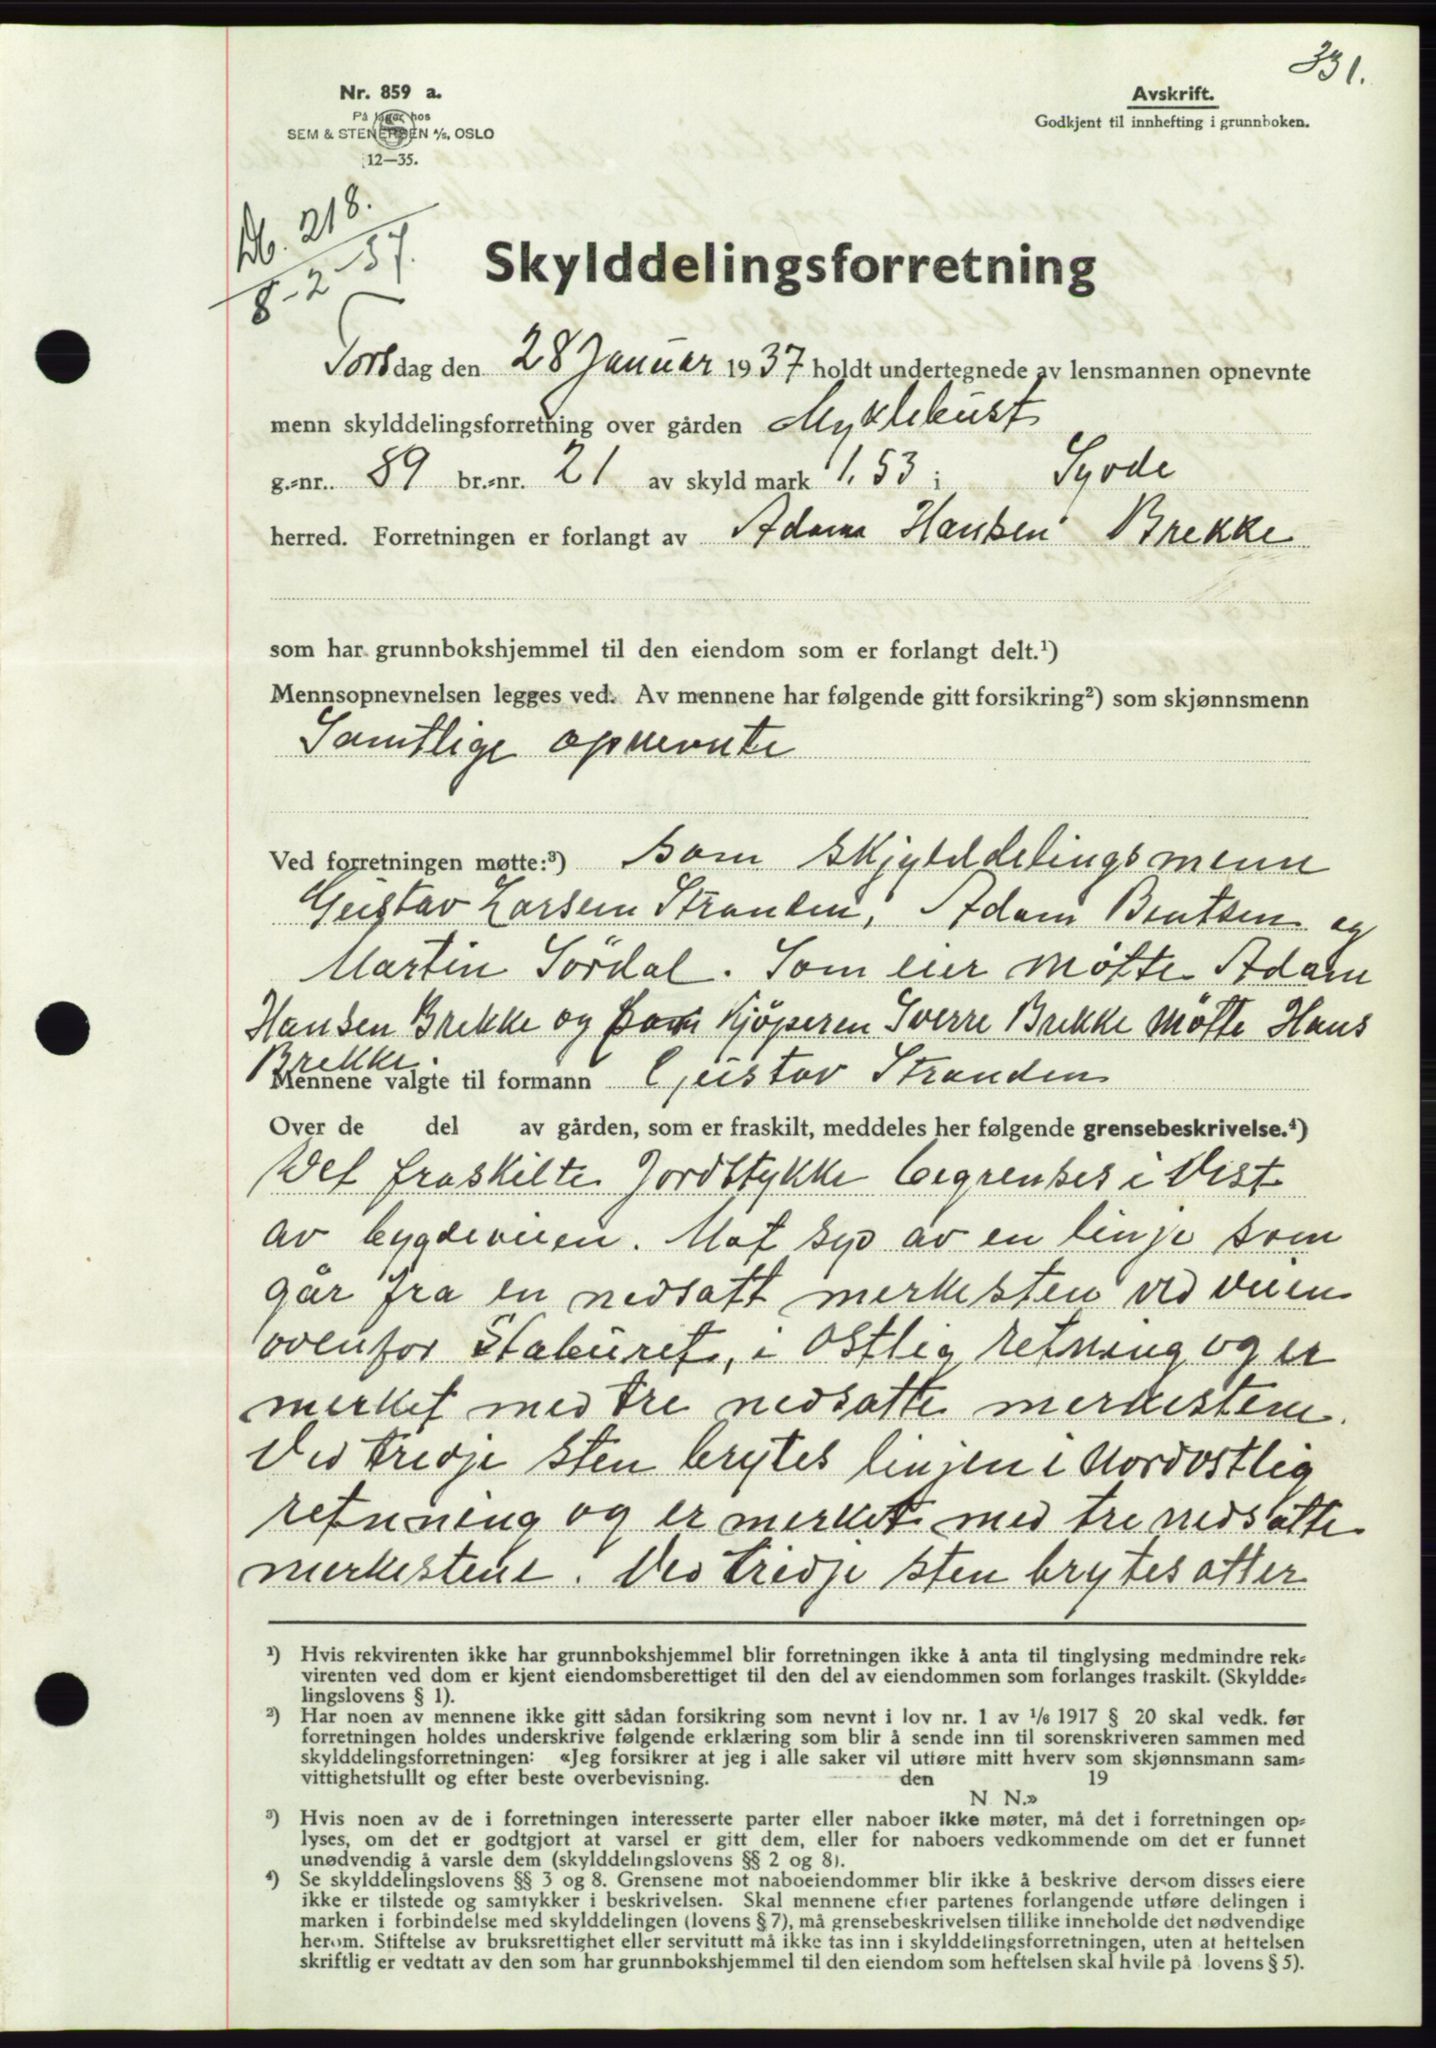 331.
Nr. 859 a.
På lager hos
SEM & STENERSEN A/S, OSLO
12—35.
Avskrift.
Godkjent til innhefting i grunnboken.
Db. 218.
8-2-37.
Skylddelingsforretning
Torsdag den 28 Januar 1937 holdt undertegnede av lensmannen opnevnte
menn skylddelingsforretning over gården Myklebust
g.=nr.. 89 br.=nr. 21 av skyld mark 1.53 i Syvde
herred. Forretningen er forlangt av Adam Hansen Brekke
som har grunnbokshjemmel til den eiendom som er forlangt delt.¹)
Mennsopnevnelsen legges ved. Av mennene har følgende gitt forsikring²) som skjønnsmenn
Samtlige opnevnte
Ved forretningen møtte:³) som skjylddelingsmenn
Gustav Larsen Stranden, Adam Bentsen og
Martin Sördal. Som eier møtte Adam
Hansen Brekke og som kjöperen Sverre Brekke møtte Hans
Brekke.
Mennene valgte til formann Gustav Stranden
Over de del av gården, som er fraskilt, meddeles her følgende grensebeskrivelse.⁴)
Det fraskilte Jordstykke begrenses i Vest
av bygdeveien. Mot syd av en linje som
går fra en nedsatt merkesten ved veien
ovenfor Staburet, i Ostlig retning og er
merket med tre nedsatte merkestene.
Ved tredje sten brytes linjen i Nordostlig
retnning og er merket med tre nedsatte
merkestene. Ved tredje sten brytes atter
¹) Hvis rekvirenten ikke har grunnbokshjemmel blir forretningen ikke å anta til tinglysing medmindre rek=
virenten ved dom er kjent eiendomsberettiget til den del av eiendommen som forlanges fraskilt. (Skyldde=
lingslovens § 1).
²) Har noen av mennene ikke gitt sådan forsikring som nevnt i lov nr. 1 av 1/6 1917 § 20 skal vedk. før
forretningen holdes underskrive følgende erklæring som blir å sende inn til sorenskriveren sammen med
skylddelingsforretningen: «Jeg forsikrer at jeg i alle saker vil utføre mitt hverv som skjønnsmann sam=
vittighetsfullt og efter beste overbevisning. den 19
N. N.»
³) Hvis noen av de i forretningen interesserte parter eller naboer ikke møter, må det i forretningen op=
lyses, om det er godtgjort at varsel er gitt dem, eller for naboers vedkommende om det er funnet
unødvendig å varsle dem (skylddelingslovens §§ 2 og 8).
⁴) Se skylddelingslovens §§ 3 og 8. Grensene mot naboeiendommer blir ikke å beskrive dersom disses eiere
ikke er tilstede og samtykker i beskrivelsen. Skal mennene efter partenes forlangende utføre delingen i
marken i forbindelse med skylddelingen (lovens § 7), må grensebeskrivelsen tillike inneholde det nødvendige
herom. Stiftelse av bruksrettighet eller servitutt må ikke tas inn i skylddelingsforretningen, uten at heftelsen
skriftlig er vedtatt av den som har grunnbokshjemmel til den eiendom som heftelsen skal hvile på lovens § 5).